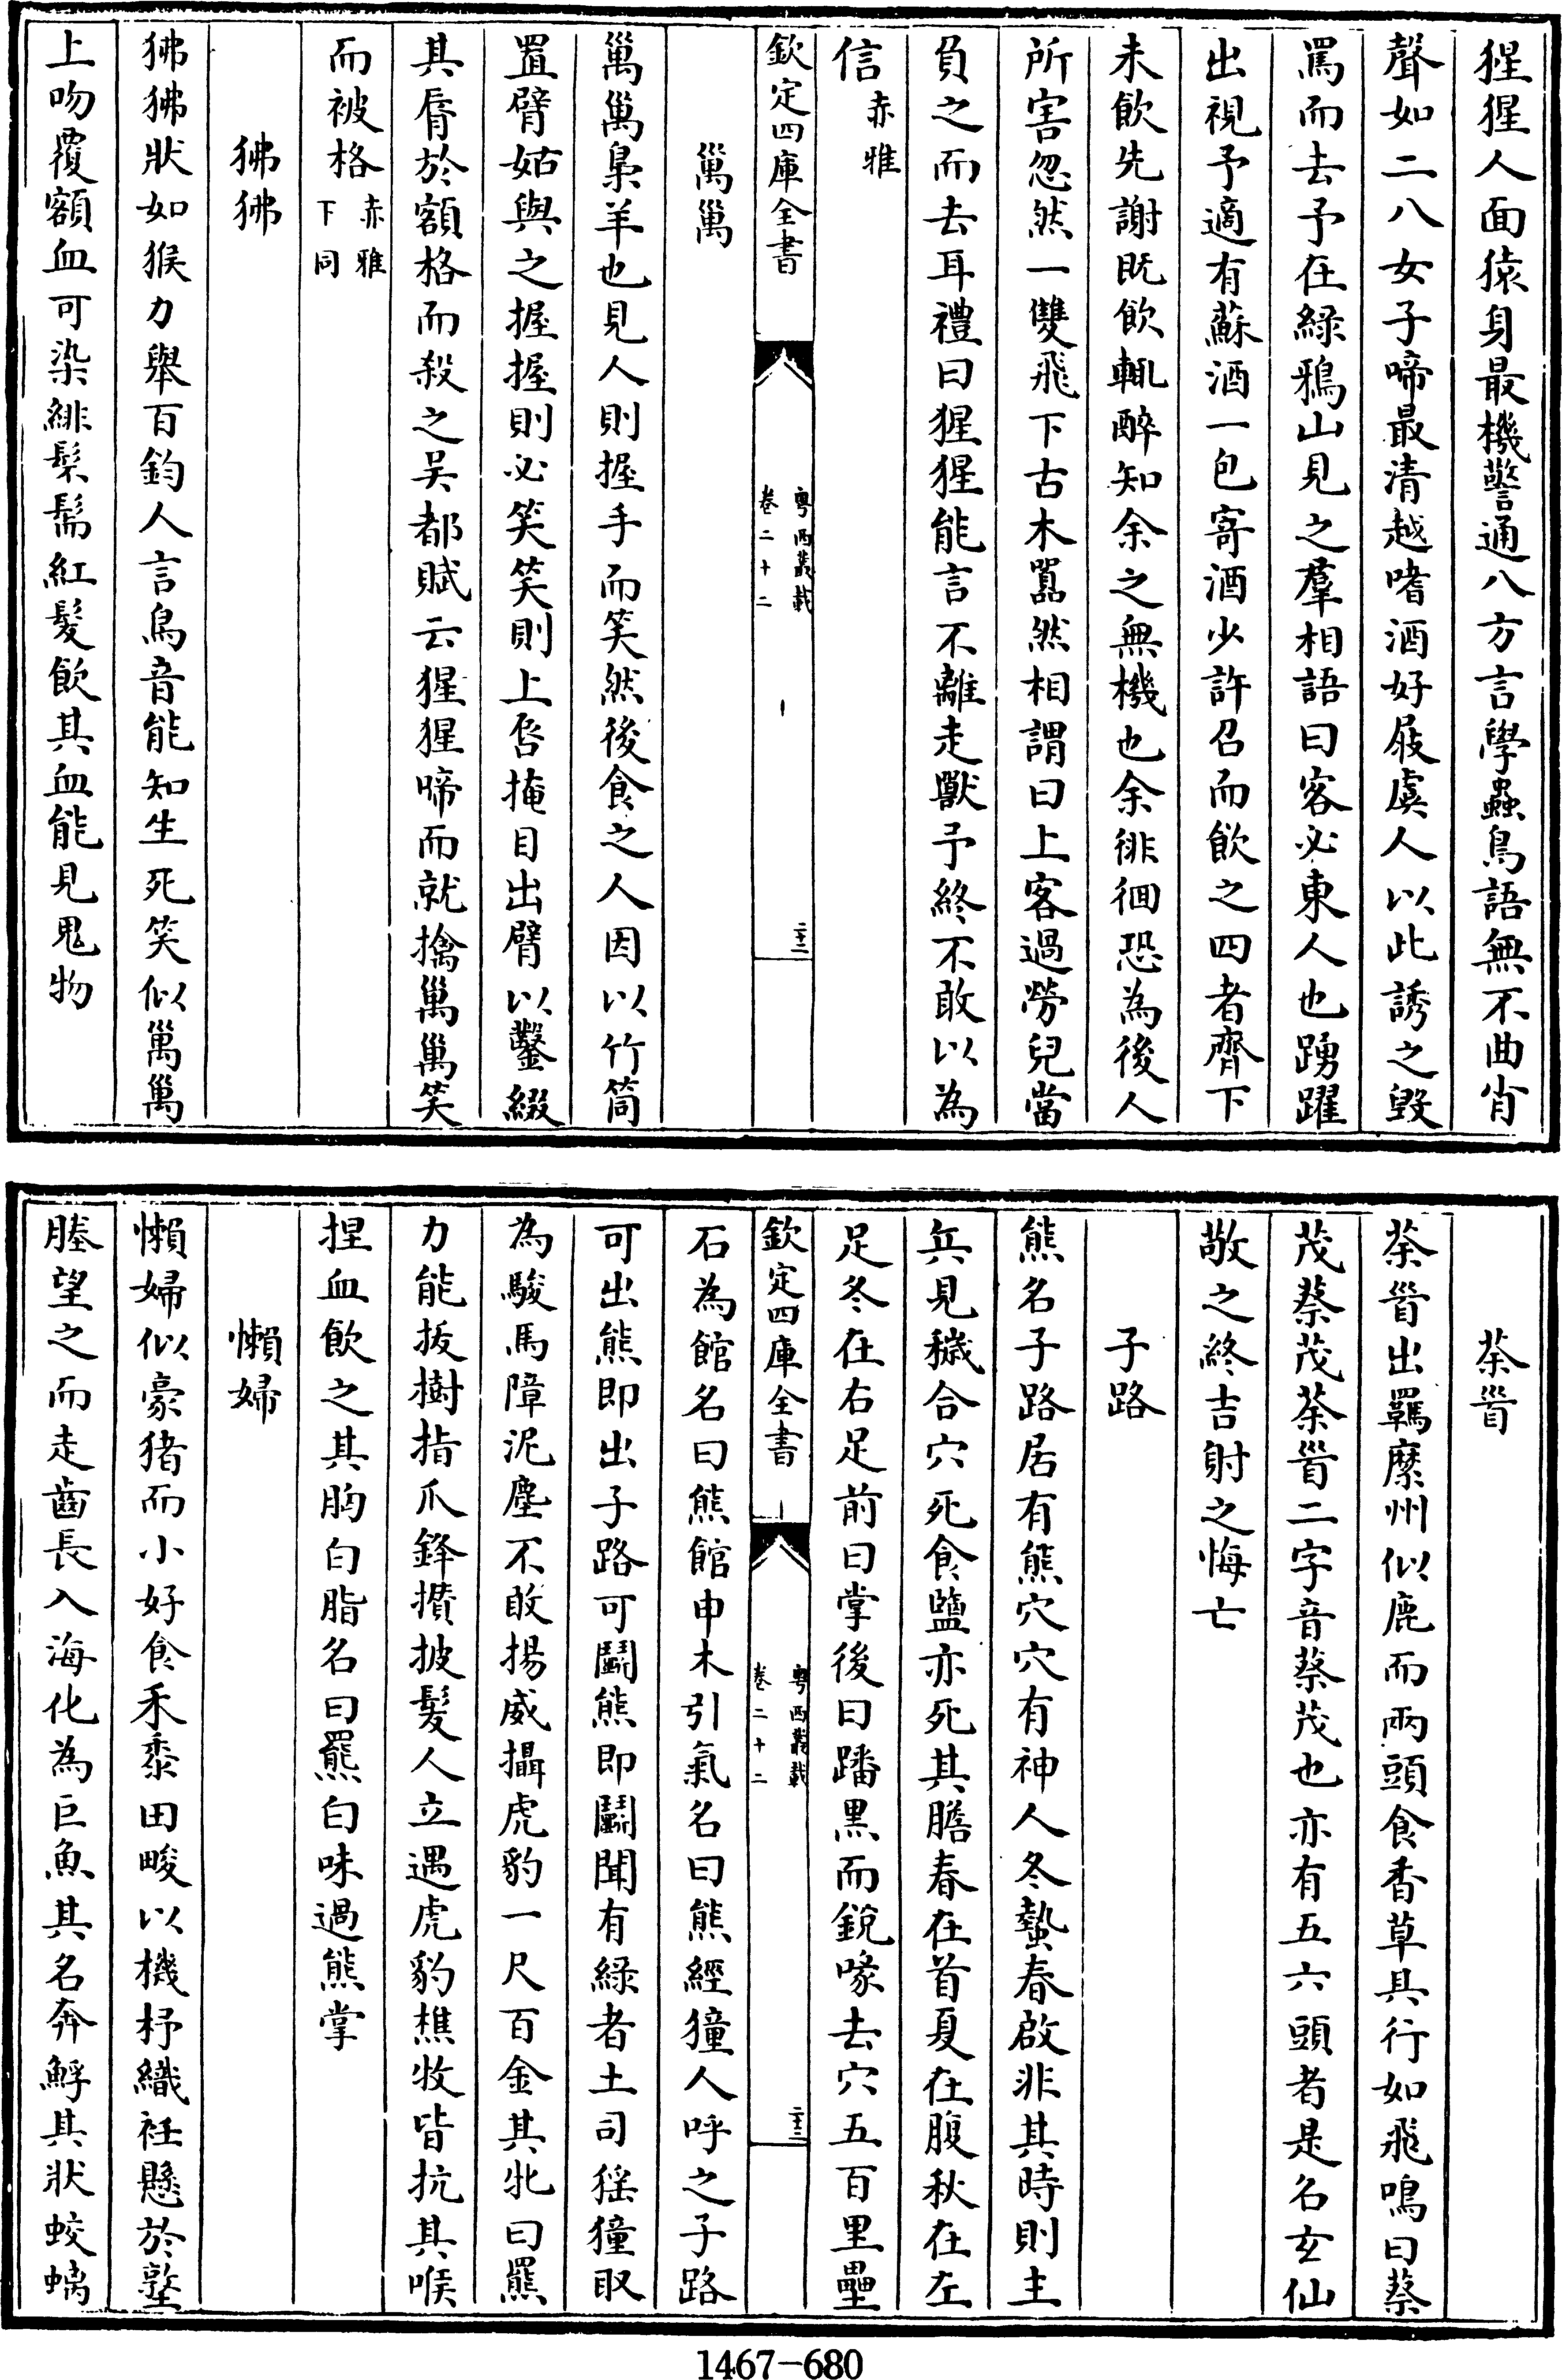 猩猩人面猿身最機警通八方言學蟲鳥語無不曲肖
聲如二八女子啼最清越嗜酒好屐虞人以此誘之毀
罵而去予在緑鴉山見之羣相語曰客必東人也踴躍
出視予適有蘇酒一包寄酒少許召而飲之四者齊下
未飲先謝既飲輒醉知余之無機也余徘徊恐為後人
所害忽然一雙飛下古木嚣然相謂曰上客過勞兒當
負之而去耳禮曰猩猩能言不離走獸予終不敢以為
信赤雅
欽定四庫全書
粤西叢載
卷二十二
𤡔𤡔
𤡔𤡔梟羊也見人則握手而笑然後食之人因以竹筒
置臂姑與之握握則必笑笑則上唇掩目出臂以鑿綴
其脣於額格而殺之吴都賦云猩猩啼而就擒𤡔𤡔笑
而被格赤雅下同
狒狒
狒狒狀如猴力舉百鈞人言鳥音能知生死笑似𤡔𤡔
上吻覆額血可染緋髹髵紅髮飲其血能見鬼物
荼𦭮
荼𦭮出羈縻州似鹿而兩頭食香草其行如飛鳴曰蔡
茂蔡茂荼𦭮二字音蔡茂也亦有五六頭者是名玄仙
敬之終吉射之悔亡
子路
熊名子路居有熊穴穴有神人冬蟄春啟非其時則主
兵見穢合穴死食鹽亦死其膽春在首夏在腹秋在左
足冬在右足前曰掌後曰蹯黑而銳喙去穴五百里壘
欽定四庫全書
粤西叢載
卷二十二
石為館名曰熊館申木引氣名曰熊經獞人呼之子路
可出熊即出子路可鬭熊即鬭聞有緑者土司猺獞取
為駿馬障泥塵不敢揚威攝虎豹一尺百金其牝曰羆
力能拔樹指爪鋒攢披髮人立遇虎豹樵牧皆抗其喉
捏血飲之其胸白脂名曰羆白味過熊掌
懶婦
懶婦似豪猪而小好食禾黍田畯以機杼織袵懸於塾
塍望之而走齒長入海化為巨魚其名奔䱐其狀蛟螭
1467-680